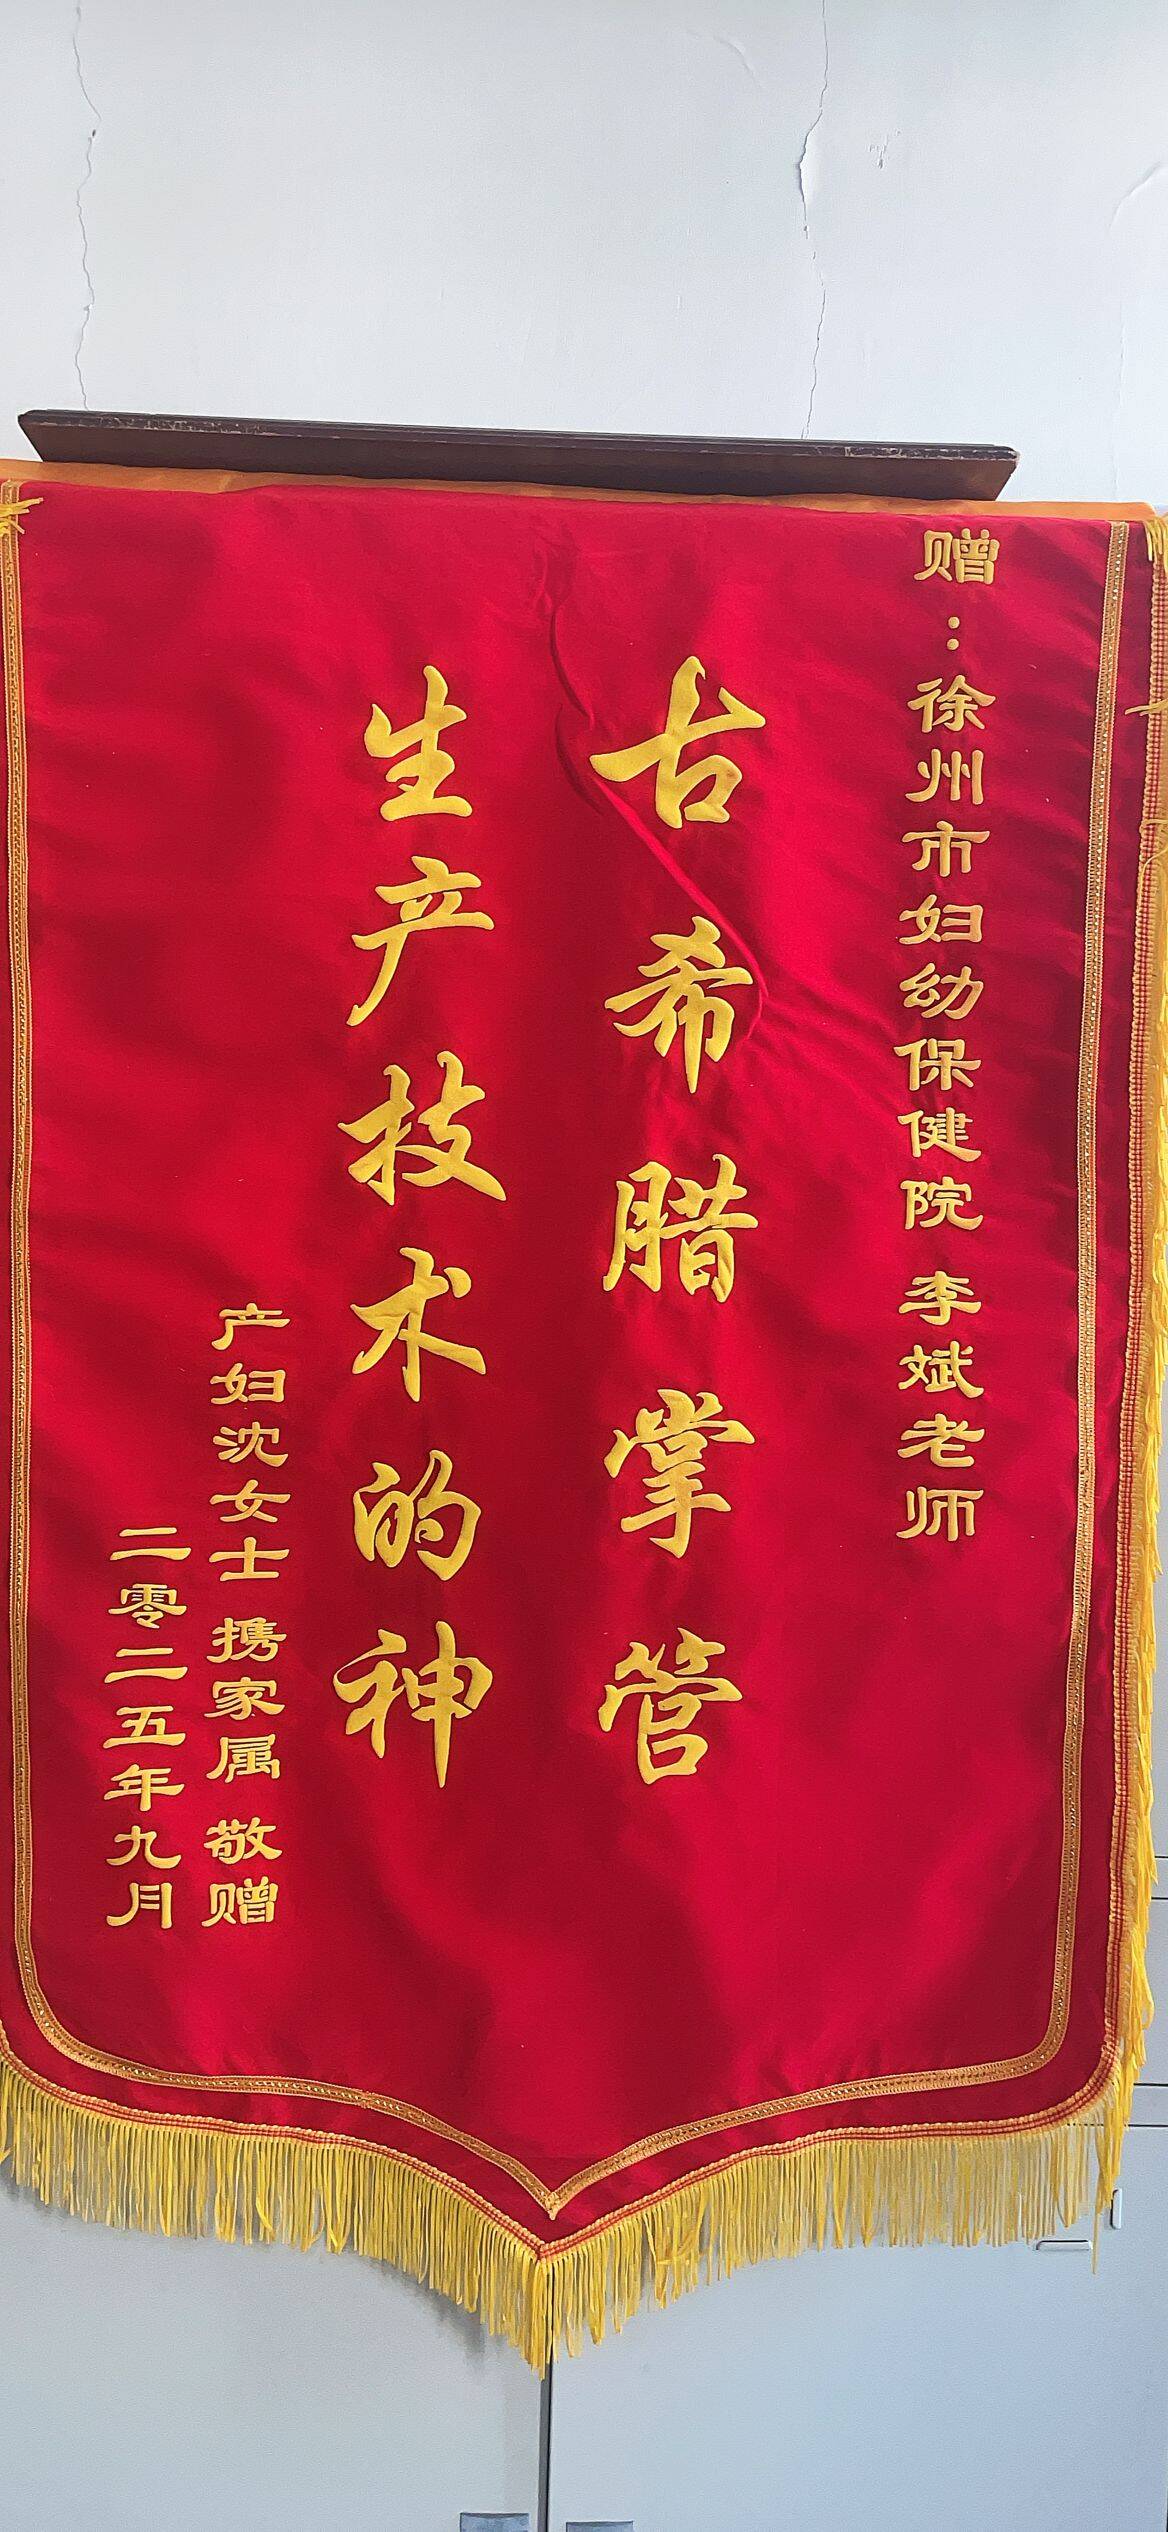 赠：徐州市妇幼保健院 李斌老师
古希腊掌管
生产技术的神
产妇沈女士 携家属 敬赠
二零二五年九月